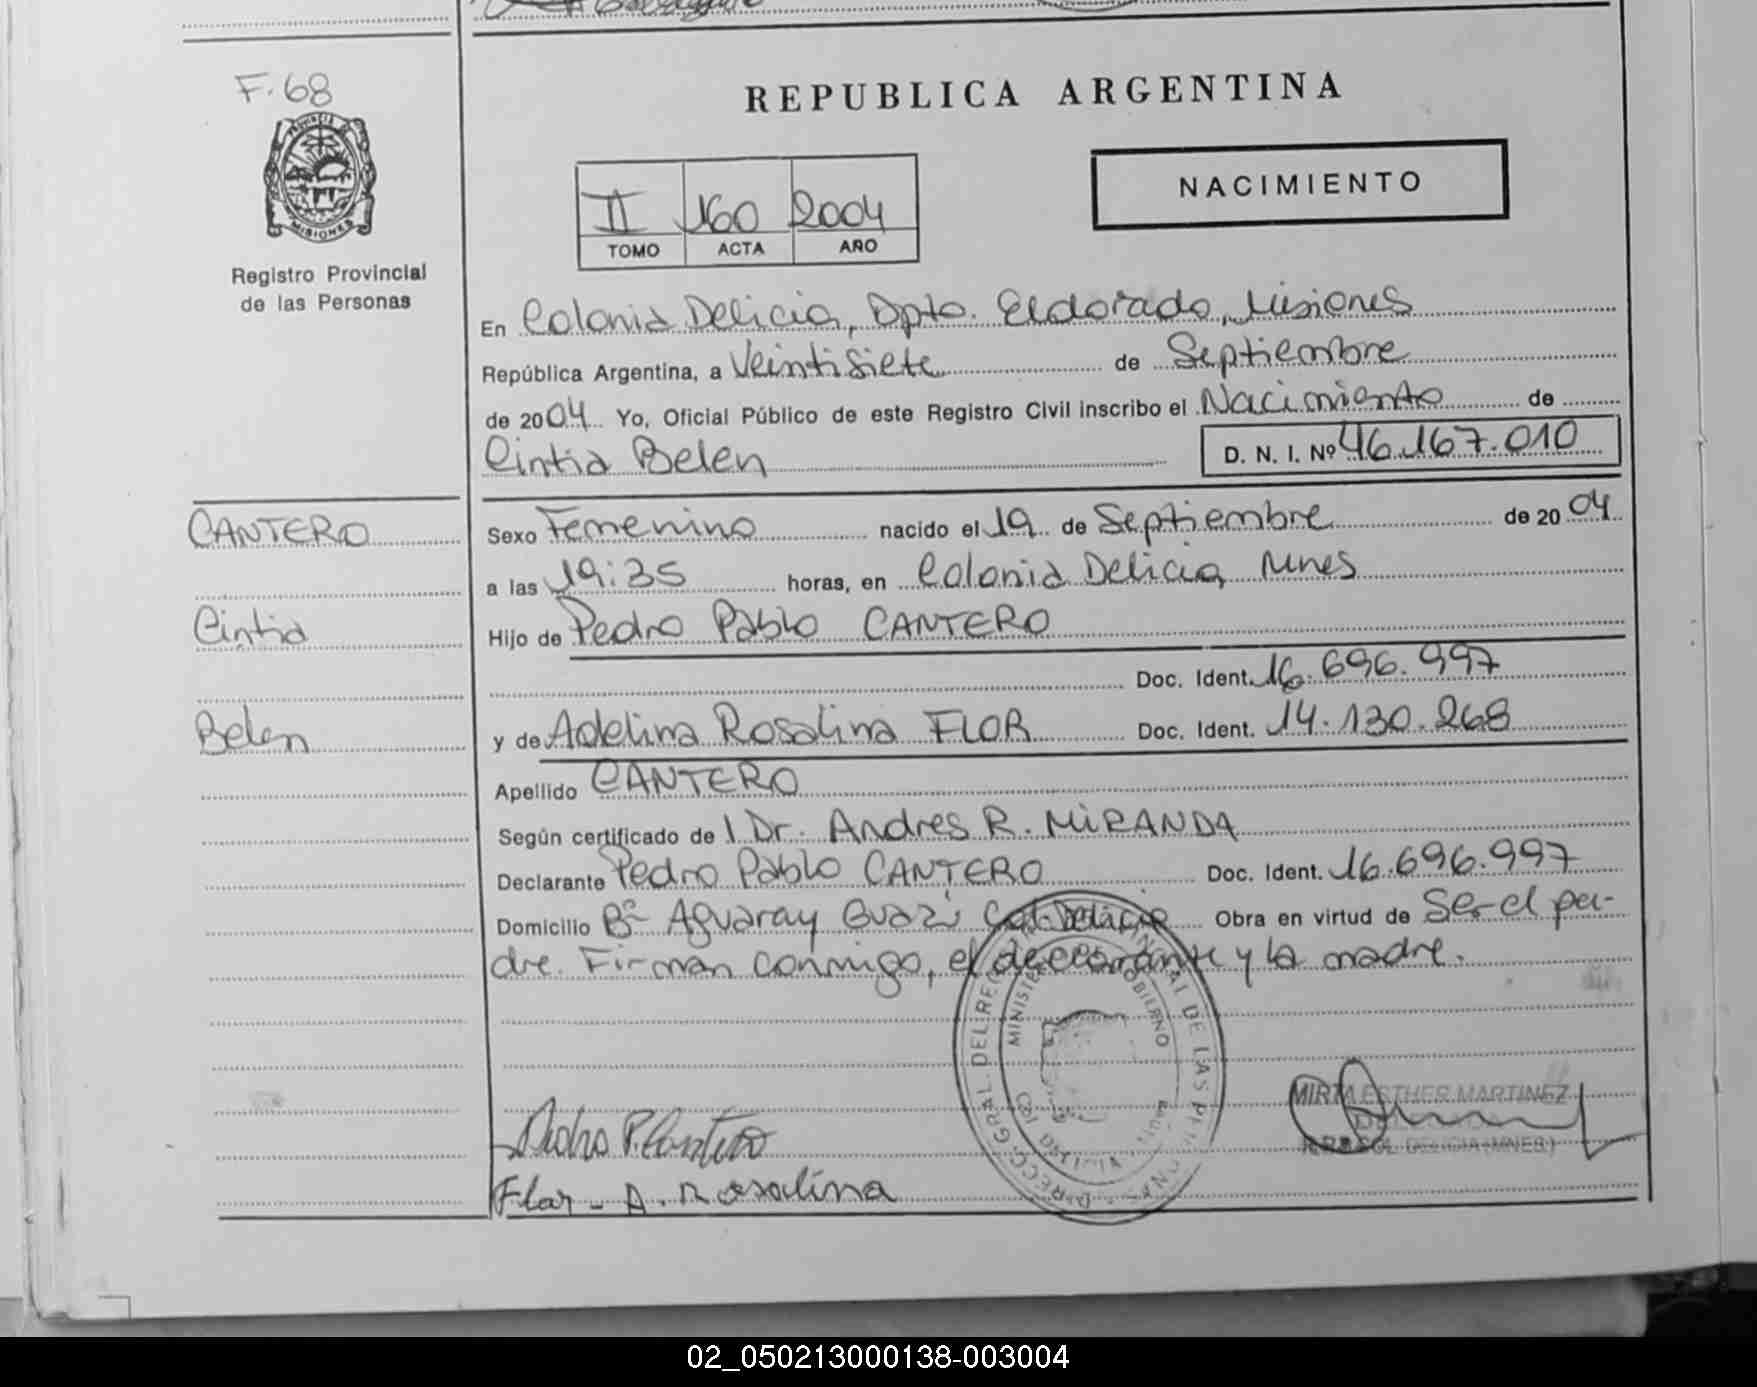 F. 68
PROVINCIA DE
MISIONES
Registro Provincial
de las Personas
REPUBLICA ARGENTINA
II 160 2004
TOMO ACTA AÑO
NACIMIENTO
En Colonia Delicia, Dpto. Eldorado, Misiones
República Argentina, a Veintisiete de Septiembre
de 2004 Yo, Oficial Público de este Registro Civil inscribo el Nacimiento de
Cintia Belen D. N. I. Nº 46.167.010
CANTERO
Cintia
Belen
Sexo Femenino nacido el 19 de Septiembre de 2004
a las 19:35 horas, en Colonia Delicia, Mnes
Hijo de Pedro Pablo CANTERO
Doc. Ident. 16.696.997
y de Adelina Rosalina FLOR Doc. Ident. 14.130.268
Apellido CANTERO
Según certificado de l Dr. Andres R. MiRANDA
Declarante Pedro Pablo CANTERO Doc. Ident. 16.696.997
Domicilio Bº Aguaray Guazú Col. Delicia Obra en virtud de Ser el pa-
dre. Firman conmigo, el declarante y la madre.
MIRTA ESTHER MARTINEZ
COL. DELICIA (MNES)
Pedro P. Cantero
Flor - A. Rosalina
02_050213000138-003004